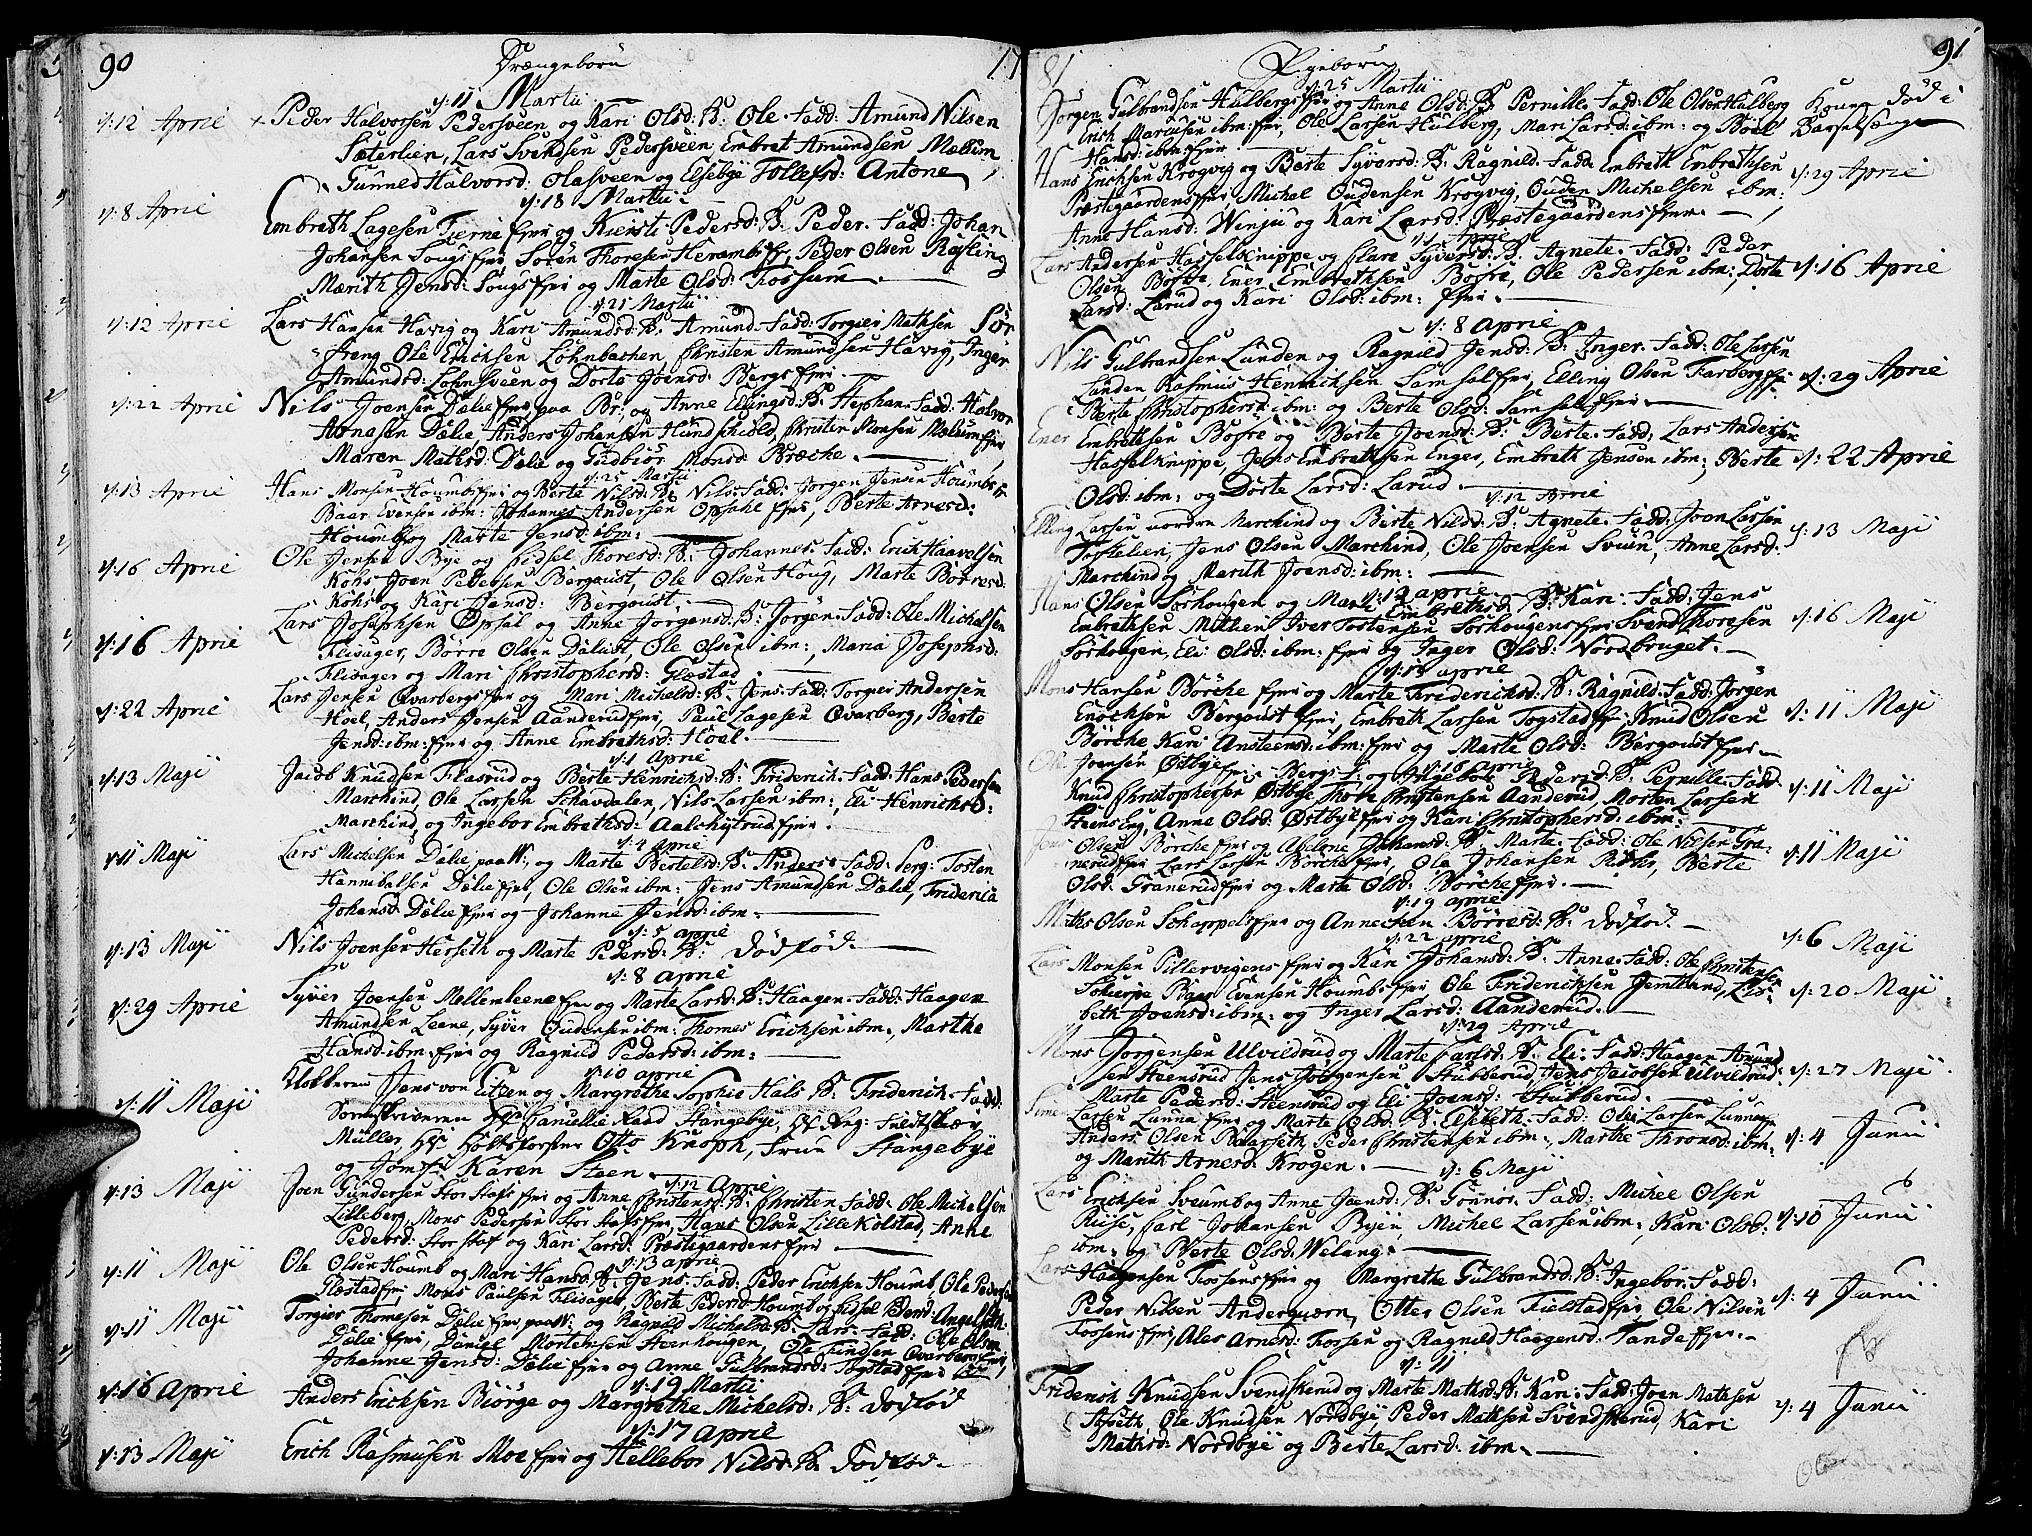 90
Drængebørn
17
d: 11 Martii
d: 12 April
Peder Halvorsen Pedersveen og Kari Olsd: B: Ole. Fadd: Amund Nilsen
Sæterlien, Lars Svendsen Pedersveen, Embret Amundsen Melum,
Gunned Halvorsd: Olasveen og Elsebye Tollefsd: Antone
d: 18 Martii
d: 8 April
Embreth Lagesen Tierne fier og Kiersti Pedersd: B: Peder. Fadd: Johan
Johansen Sougs fier Søren Thoresen Heramb fr, Peder Olsen Røyling
Merith Jensd: Sougs fier og Marte Olsd: Fossum
d: 25 Martii
d: 12 April
Lars Hansen Havig og Kari Amundsd: B: Amund. Fadd: Torgier Mathsen Sør
Ole Erichsen Løhnbachen, Christen Amundsen Havig, Inger
Amundsd: Løhnsveen og Dorte Joensd: Bergs fier.
d: 22 April
Nils Joensen Dælie fier paa Br: og Anne Ellingsd: B: Stephan. Fadd: Halvor
Arnesen Dælie Anders Johansen Hundschiold, Christen Monsen Melum fier
Maren Mathsd: Dælie og Gudbiør Monsd: Bræche.
d: 25 Martii
d: 13 April
Hans Monsen Houmbs fier og Berte Nilsd: B: Nils. Fadd: Jørgen Jensen Houmbs fr
Baar Evensen ibm: Johannes Andersen Opsahl fier, Berte Arnesd:
Houmb og Marte Jensd: ibm:
d: 16 April
Ole Jensen Bye og Sidsel Thoresd: B: Johannes. Fadd: Erich Haavelsen
Kohs Joen Pedersen Bergqvist, Ole Olsen Houg, Marte Børresd:
Kohs og Kari Jensd: Bergqvist.
d: 16 April
Lars Josephsen Opsal og Anne Jørgensd: B: Jørgen. Fadd: Ole Michelsen
Flisager, Børre Olsen Dælist, Ole Olsen ibm:, Maria Josephsd:
Flisager og Mari Christophersd: Glæstad
d: 22 April
Lars Jensen Qvarbergs fier og Mari Michelsd: B: Jens. Fadd: Torgier Andersen
Hoel, Anders Jensen Aanderud fier, Paul Lagesen Qvarberg, Berte
Jensd: ibm: fier og Anne Embrethsd: Hoel.
d: 1 April
d: 13 Maji
Jacob Knudsen Flasrud og Berte Hinrichsd: B: Friderich. Fadd: Hans Pedersen
Marchind, Ole Larsen Schavdalen, Nils Larsen ibm:, Eli Henrichsd:
Marchind og Ingebor Embrethsd: Aalchystrud fier.
d: 4 April
d: 11 Maji
Lars Michelsen Dælie paa W:, og Marte Bertelsd: B: Anders. Fadd: Serg: Tosten
Hannibalsen Dælie fier, Ole Olsen ibm: Jens Amundsen Dælie, Friderica
Johansd: Dælie fier og Johanne Jensd: ibm.
d: 5 April
d: 13 Maji
Nils Joensen Herseth og Marte Pedersd: B: Dødfød.
d: 8 April
d: 29 April
Syver Joensen Mellemleene fier og Marte Larsd: B: Haagen. Fadd: Haagen
Amundsen Leene, Syver Oudensen ibm: Thomes Erichsen ibm:, Marthe
Hansd: ibm: fier og Ragnild Pedersd: ibm:
d: 10 April
d: 11 Maji
Klokkeren Jens von Eitzen og Margrethe Sophie Hals B: Friderich. Fadd:
Sorenskriveren Hr Canuellie Raad Stangebye, Hr Reg: Feldtskiær
Müller, Hr Holtzførster Otto Knoph, Frue Stangebye
og Jomfr Karen Steen.
d: 12 April
d: 13 Maji
Joen Gundersen Stor Stafs fier og Anne Christensd: B: Christen Fadd: Ole Michelsen
Lilleberg, Mons Pedersen Stor Stafs fier, Hans Olsen Lille Kolstad, Anne
Pedersd: Storstaf og Kari Larsd: Præstigaardens fier
d: 13 April
d: 11 Maji
Ole Olsen Houmb og Mari Hansd: B: Jens. Fadd: Peder Erichsen Houmb, Ole Peders
Glæstad fier Mons Paulsen Flisager, Berte Pedersd: Houmb og Sidsel
d: 11 Maji
Torgier Thomesen Dælie fier paa W: og Ragnild Michelsd: B: Lars. Fadd: Ole Olsen
Dælie fier, Daniel Mortensen Steenhougen, Ole Findsen Qvarberg fier,
Johanne Jensd: Dælie fier og Anne Gulbrandsd: Togstad fier
d: 19 Martii
d: 16 April
Anders Erichsen Biørge og Margrethe Michelsd: B: Dødfød
d: 17 April
d: 13 Maji
Erich Rasmusen Moe fier og Hellebor Nilsd: B: Dødfød.
81
Pigebørn
91
d: 25 Martii
Jørgen Gulbrandsen Hulbergs fier og Anne Olsd: B: Pernille. Fadd: Ole Olsen Hulberg
Erich Mariusen ibm: fier, Ole Larsen Hulberg, Mari Larsd: ibm: og Boel
Hansd: ibm fier
Kone død i
Barselseng
Hans Erichsen Krogvig og Berte Syversd: B: Ragnild. Fadd: Embreth Embrethsen
Præstigaardens fier Michel Oudensen Krogvig, Ouden Michelsen ibm:
Anne Hansd: Winju og Kari Larsd: Præstegaardens fier.
d: 29 April
d: 1 April
Lars Andersen Hasselknippe og Clare Syversd: B: Agnete. Fadd: Peder
Olsen Bøfre, Ener Embrethsen Bøfre, Ole Pedersen ibm:, Dorte
Larsd: Larud og Kari Olsd: ibm: fier.
d: 16 April
d: 8 April
Nils Gulbrandsen Lunden og Ragnild Jensd: B: Inger. Fadd: Ole Larsen
Lunden Rasmus Henrichsen Samsal fier, Elling Olsen Farberg fr
Berte Christophersd: ibm: og Berte Olsd: Samsal fier.
d: 29 April
Ener Embrethsen Bøfre og Berte Joensd: B: Berte. Fadd: Lars Andersen
Hasselknippe, Jens Embrethsen Enger, Embreth Jensen ibm:, Berte
Olsd: ibm: og Dorte Larsd: Larud.
d: 22 April
d: 12 April
Elling Larsen nordre Marchind og Berte Nilsd: B: Agnete. Fadd: Joen Larsen
Toftelien, Jens Olsen Marchind, Ole Joensen Sviin, Anne Larsd:
Marchind og Marith Joensd: ibm:
d: 13 Maji
d: 12 April
Hans Olsen Sørhougen og Mari Embrethsd: B: Kari. Fadd: Jens
Embrethsen Mitlien Iver Tostensen Sørhougens fier Svend Thoresen
Sørhogen, Eli Olsd: ibm: fier og Inger Olsd: Nordbruget.
d: 16 Maji
d: 13 April
Mons Hansen Børche fier og Marte Friderichsd: B: Ragnild. Fadd: Jørgen
Enochsen Bergqvist fier, Embreth Larsen Togstad fr Knud Olsen
Børche Kari Ansteensd: ibm: fier og Marte Olsd: Bergqvist fier
d: 11 Maji
d: 16 April
Ole Joensen Østbye fier Bergs S: og Ingebor Pedersd: B: Pernille. Fadd:
Knud Christophersen Østbye Thore Christensen Aanderud, Morten Larsen
Steens Eng, Anne Olsd: Østbye fier og Kari Christophersd: ibm:
d: 11 Maji
Jens Olsen Børche fier og Abelone Johansd: B: Marte. Fadd: Ole Nilsen Gra-
nerud fier Lars Larsen Børche fier, Ole Johansen, Berte
Olsd: Granerud fier og Marte Olsd: Børche fier.
d: 11 Maji
d: 19 April
Maths Olsen Scheppel fier og Annichen Børresd: B: Dødfød.
d: 22 April
d: 6 Maji
Lars Monsen Tillervigens fier og Kari Johansd: B: Anne. Fadd: Ole Christensen
Scherpe Baar Evensen Houmb. fier Ole Fridericksen Jemtland, Lis-
beth Joensd: ibm: og Inger Larsd: Aanderud.
d: 20 Maji
d: 29 April
Mons Jørgensen Ulvildrud og Marte Carlsd: B: Eli. Fadd: Haagen Amund
sen Steensrud Jens Jørgensen Stubberud, Jens Jacobsen Ulvildrud
Marte Pedersd: Steensrud og Eli Joensd: Stubberud.
d: 27 Maji
Sime Larsen Lunna fier og Marte Olsd: B: Elsebeth. Fadd: Ole Larsen Lunna fr
Anders Olsen Baarseth Peder Christensen ibm:, Marthe Thronsd: ibm:
og Marith Arnesd: Krogen.
d: 4 Junii
d: 6 Maji
Lars Erichsen Sveumb og Anne Joensd: B: Gonnor. Fadd: Michel Olsen
Riise, Carl Johansen Byen, Michel Larsen ibm:, Kari Olsd:
ibm: og Berte Olsd: Welang.
d: 10 Junii
Lars Haagensen Fossens fier og Margrethe Gulbrandsd: B: Ingebor. Fadd:
Peder Nilsen Anderqværn, Otter Olsen Fielstad fier Ole Nilsen
Fossens fier, Ales Arnesd: Fossen og Ragnild Haagensd: Tande fier.
d: 4 Junii
d: 11
Friderich Knudsen Svendskerud og Marte Mathsd: B: Kari. Fadd: Joen Mathsen
Aaseth, Ole Knudsen Nordbye Peder Mathsen Svendskerud, Kari
Mathsd: Nordbye og Berte Larsd: ibm.
d: 4 Junii